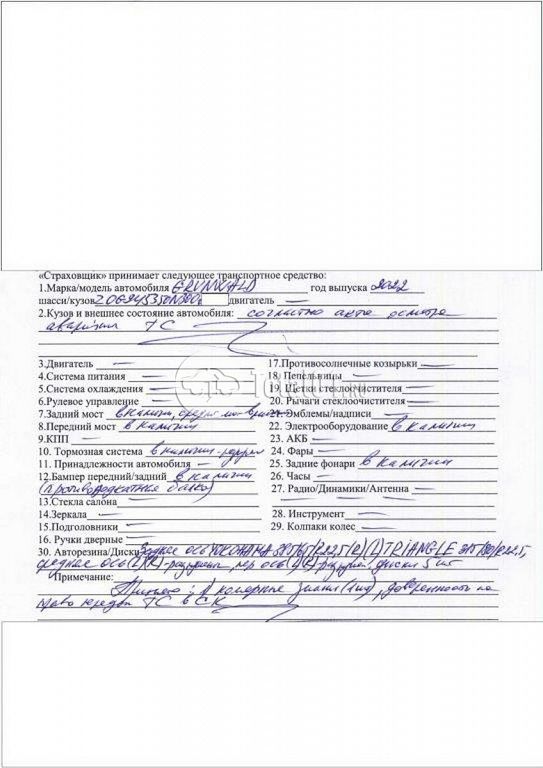 «Страховщик» принимает следующее транспортное средство:
1.Марка/модель автомобиля GRUNWALD год выпуска 2022
шасси/кузов двигатель —
2.Кузов и внешнее состояние автомобиля: согласно акта осмотра
аварийн ТС
3.Двигатель — 17.Противосолнечные козырьки —
4.Система питания — 18. Пепельницы —
5.Система охлаждения — 19. Щетки стеклоочистителя —
6.Рулевое управление — 20. Рычаги стеклоочистителя —
7.Задний мост в наличии, 21. Эмблемы/надписи —
8.Передний мост в наличии 22. Электрооборудование в наличии
9.КПП — 23. АКБ —
10. Тормозная система в наличии 24. Фары —
11. Принадлежности автомобиля — 25. Задние фонари в наличии
12.Бампер передний/задний в наличии 26. Часы —
(противоподкатная балка) 27. Радио/Динамики/Антенна —
13.Стекла салона —
14.Зеркала — 28. Инструмент —
15.Подголовники — 29. Колпаки колес —
16. Ручки дверные —
30. Авторезина/Диски Задние ось YOKOHAMA 385/65/R22.5 (R)(L) TRIANGLE
среднее ось (L)(R) - разрушены, пер ось (L)(R) диски 5 шт
Примечание:
номерные знаки (1шт), доверенность на
право передачи ТС в СК